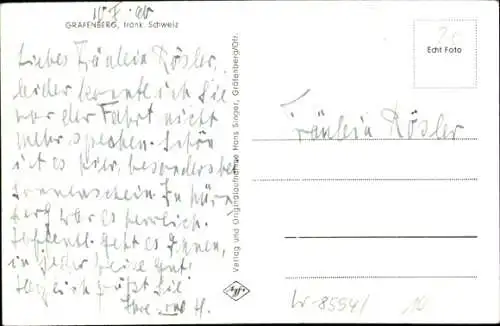 GRÄFENBERG, fränk. Schweiz
Liebes Fräulein Rösler,
leider konnte ich Sie
vor der Fahrt nicht
mehr sprechen. Schön
ist es hier, besonders bei
Sonnenschein. In Nürn
berg war es herrlich.
Hoffentl. geht es Ihnen,
in jeder Weise gut.
Herzlich grüßt Sie
Ihre H.
Verlag und Originalaufnahme Hans Singer, Gräfenberg/Ofr.
Echt Foto
Fräulein Rösler